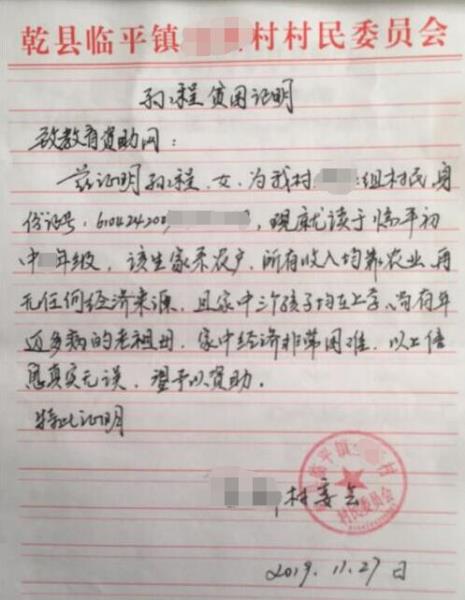 乾县临平镇 村村民委员会
孙程贫困证明
致教育资助网：
兹证明孙程，女，为我村 组村民，身
份证号：61042420 ，现就读于临平初
中 年级，该生家系农户，所有收入均靠农业，再
无任何经济来源，且家中三个孩子均在上学，尚有年
迈多病的老祖母，家中经济非常困难，以上信
息真实无误，望予以资助。
特此证明
临平镇 村
村民委员会
村委会
2019.11.27日